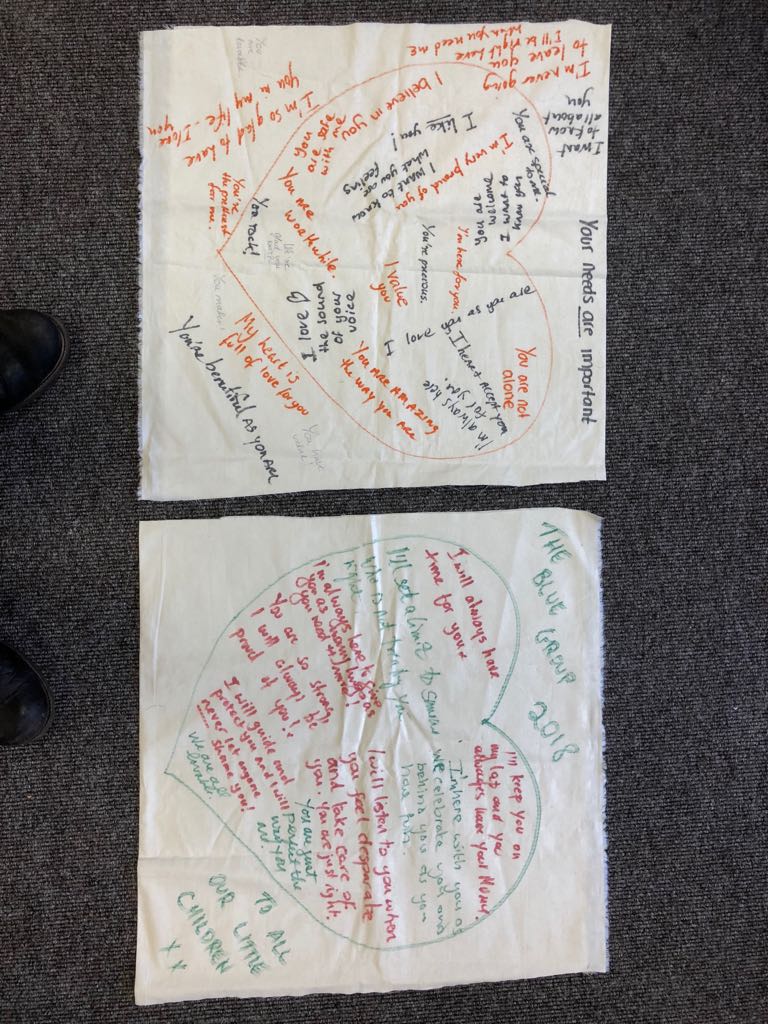 Your needs are important
I'm never going
to leave you
I'll be right here
when you need me
I want
to know
all about
you
You are special
to me.
I want to
hear you
You are
welcome
I believe in you
I like you!
I'm very proud of you
I want to know
what you are
feeling
You are
safe
with me
I'm so glad to have
you in my life - I love
you
You are
lovable
You are
worthwhile.
You rock!
You're
the
for me.
You're precious.
I value
you
I love
the sound
of your
voice
I love you as you are
You are not
alone
I accept you
I'm always here
for you.
You are AMAZING
the way you are
My heart is
full of love for you
You're beautiful as you are
You have
value
THE BLUE GROUP 2018
I will always have
time for you x
I'll set a limit to someone
who is not treating you
right
I'm always here to give
you as many hugs as
you need
You are so strong,
I will always be
proud of you!!
I will guide and
protect you and I will
never let anyone
shame you!
we are all
I'll keep you on
my lap and you
always have your Mummy.
I'm here with you as
we celebrate
behind you as you
have fun.
I will listen to you when
you feel desperate
and take care of
you. You are just right.
You are just
perfect the
way you
are.
TO ALL
OUR LITTLE
CHILDREN
X X